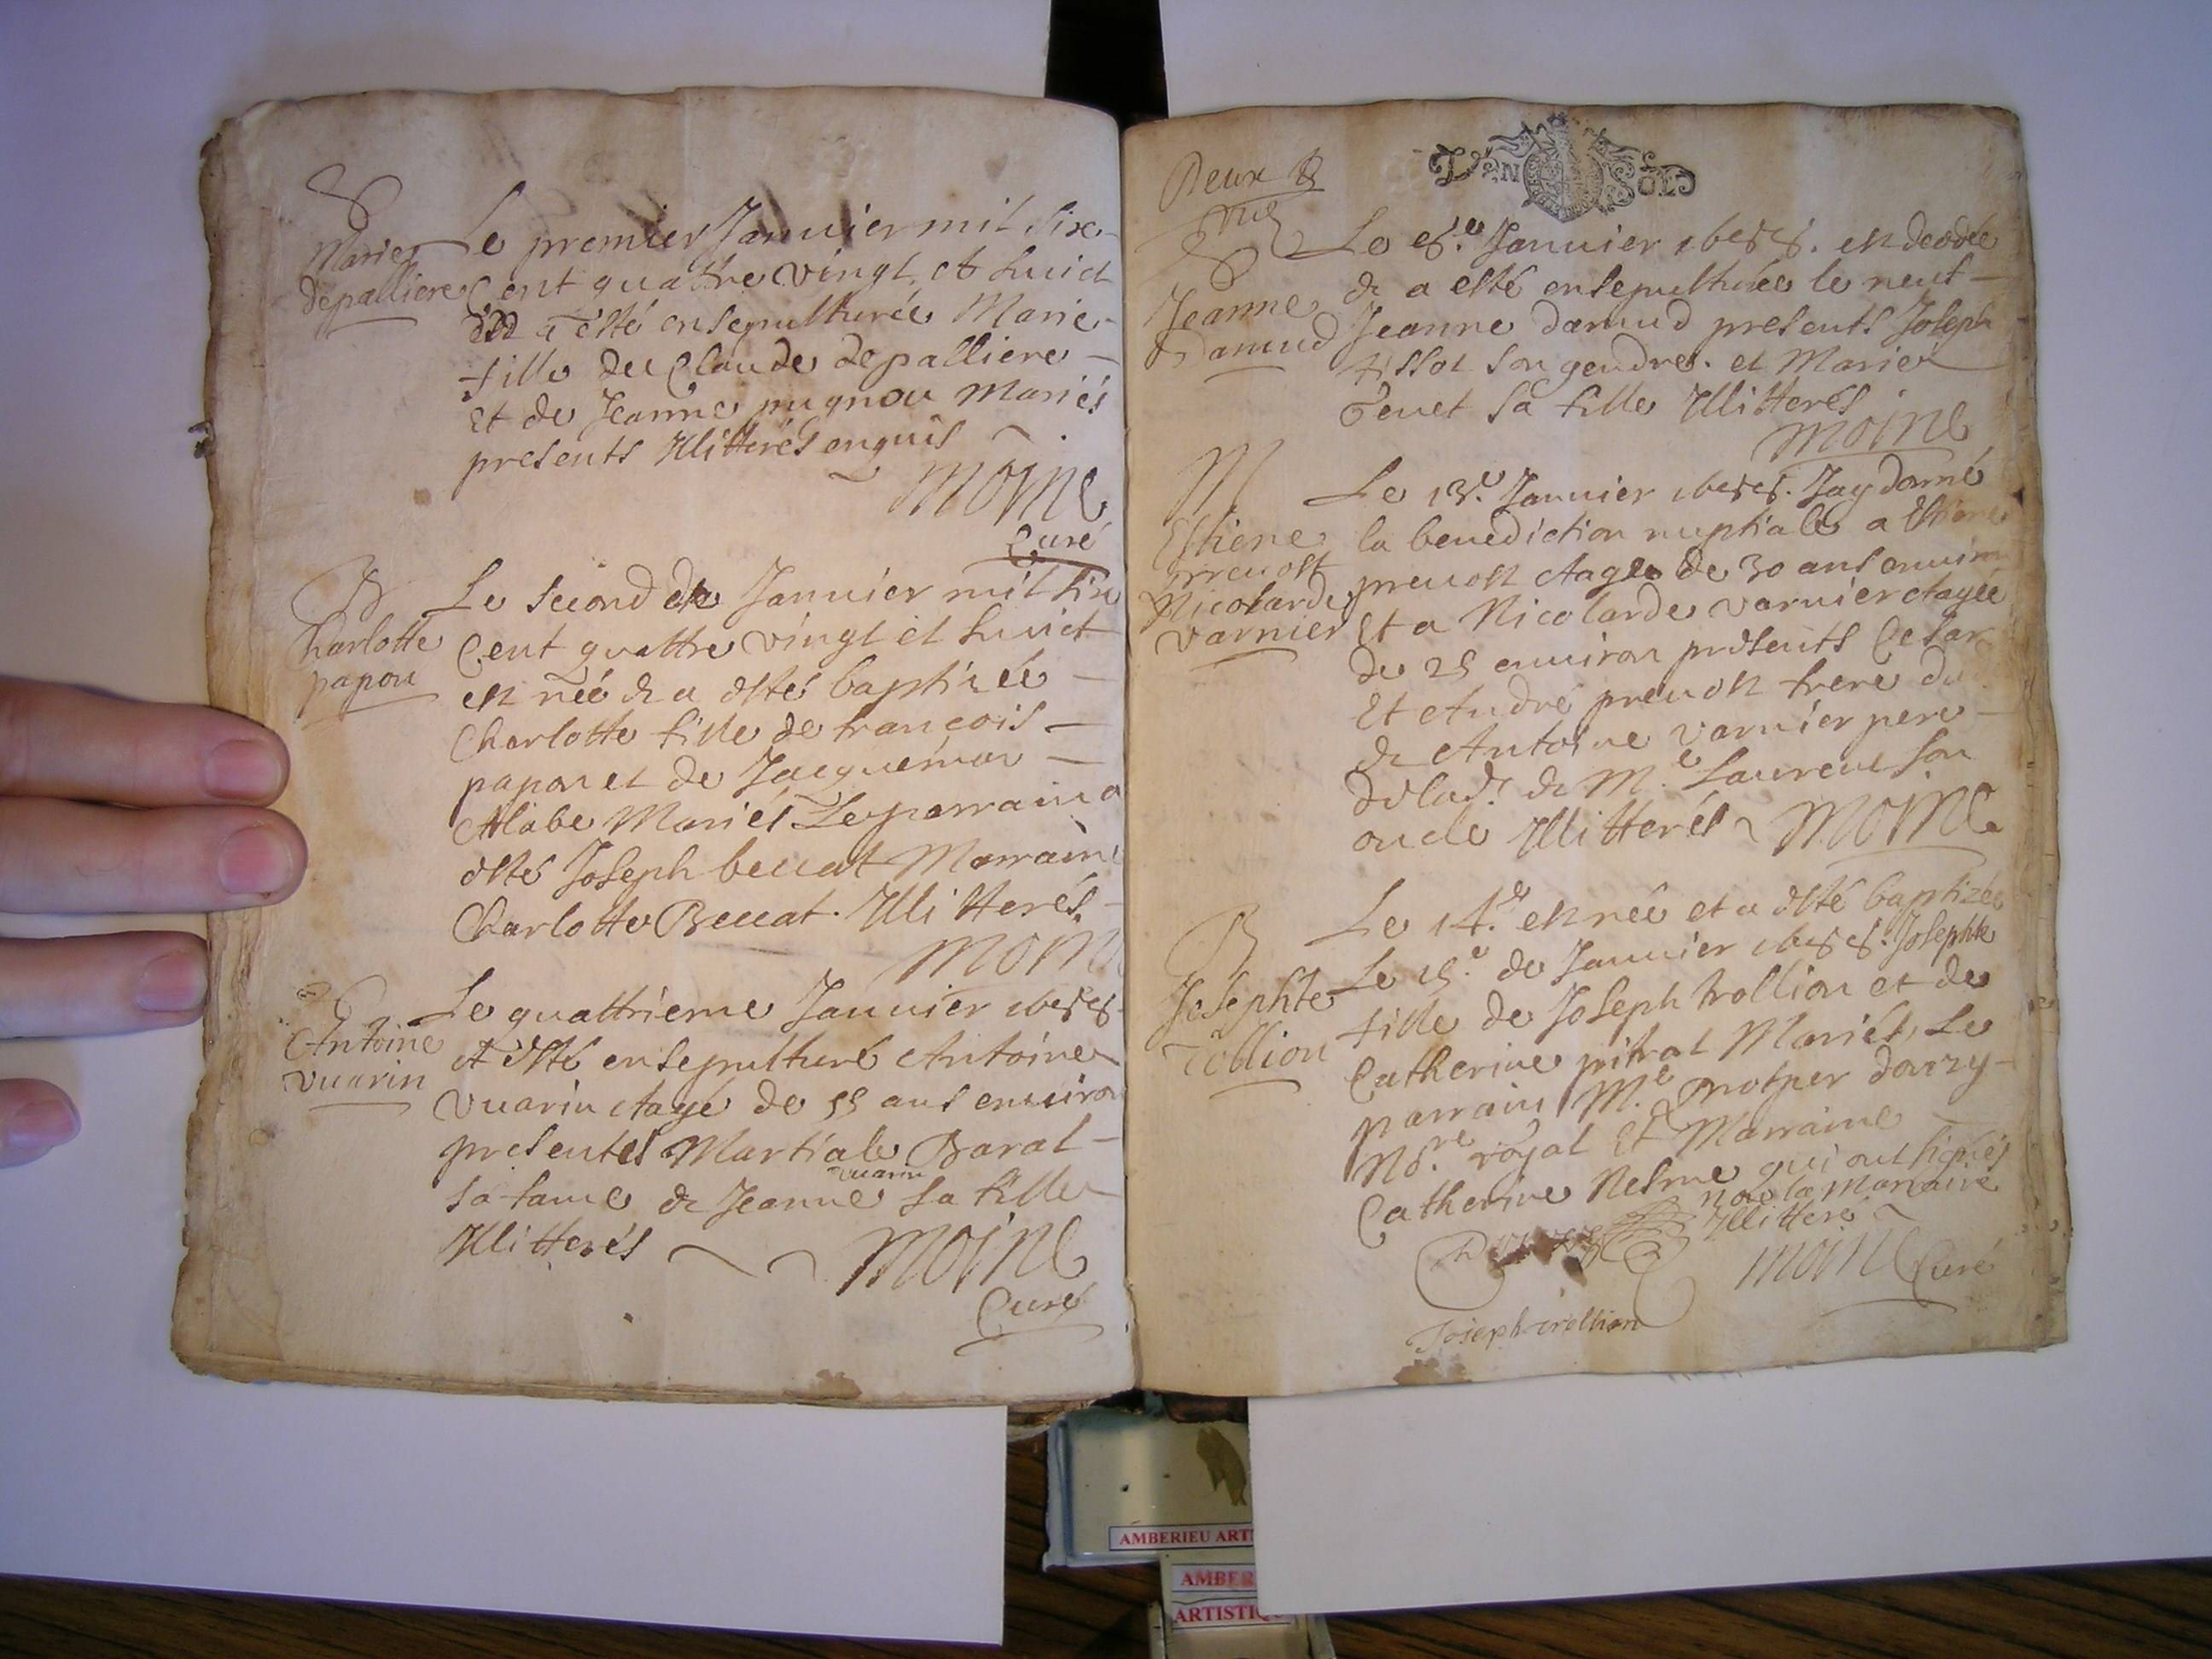 Marie
depalliere
Le premier Janvier mil six
Cent quatre vingt et huict
a esté ensepulturée Marie
fille de Claude depalliere
Et de Jeanne pugnou Mariés
presents Illitterés enquis
Moine
Curé
B
Charlotte
papon
Le second de Janvier mil six
Cent quattre vingt et huict
est née & a esté baptizée
Charlotte fille de françois
papon et de Jacquemon
Alabe Mariés Le parrain a
esté Joseph beuat Marraine
Charlotte Beuat. Illitterés
Moine
Antoine
vuarin
Le quattrieme Janvier 1688
A esté ensepulturé Antoine
vuarin Aagé de 55 ans environ
presentes Martiale Baral
vuarin
sa fame & Jeanne sa fille
Illitterés
Moine
Curé
Deux &
DEN SOLS
Jeanne
Damud
Le 8.e Janvier 1688. est decedée
& a esté ensepulturée le neuf
Jeanne Damud presents Joseph
tissot son gendre. et Marie
sa fille Illitterés
Moine
M
Estiene
prevost
Nicolarde
varnier
Le 13.e Janvier 1688. Jay donné
la benediction nuptiale a Estiene
prevost Aagé de 30 ans environ
Et a Nicolarde varnier Aagée
de 25 environ presents Cesar
Et André prevost frere du
& Antoine varnier pere
de lad. & M.e Laurent son
oncle Illitterés Moine
B
Josephte
Tollion
Le 14.e est née et a esté baptizée
Le 15.e de Janvier 1688. Josephte
fille de Joseph trollion et de
Catherine pitrat Mariés, Le
parrain M.e prosper dorzy
No.re royal Et Marraine
Catherine Nesme qui ont signés
non la Marraine
Illitteré
Moine Curé
Joseph trollion
AMBERIEU ART
AMBER
ARTISTIQ